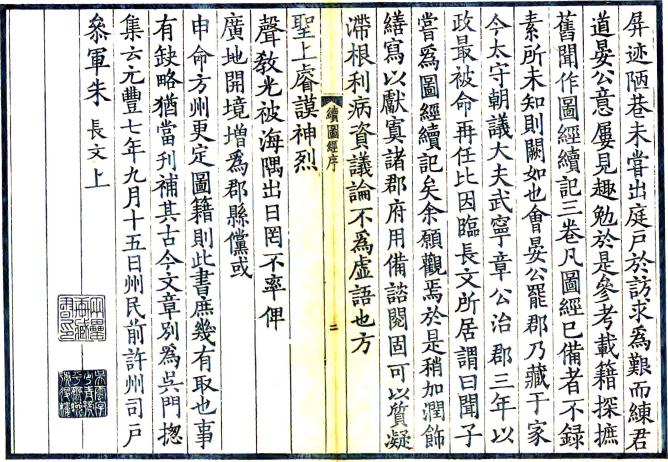 屏迹陋巷未嘗出庭戶於訪求爲艱而練君
道晏公意屢見趣勉於是參考載籍探摭
舊聞作圖經續記三卷凡圖經已備者不錄
素所未知則闕如也會晏公罷郡乃藏于家
今太守朝議大夫武寧章公治郡三年以
政最被命再任比因臨長文所居謂曰聞子
嘗爲圖經續記矣余願觀焉於是稍加潤飾
繕寫以獻寘諸郡府用備諮閱固可以質凝
滯根利病資議論不爲虛語也方
續圖經序
二
聖上睿謨神烈
聲敎光被海隅出日罔不率俾
廣地開境增爲郡縣儻或
申命方州更定圖籍則此書庶幾有取也事
有缺略猶當刊補其古今文章別爲吳門揔
集云元豐七年九月十五日州民前許州司戶
叅軍朱長文上